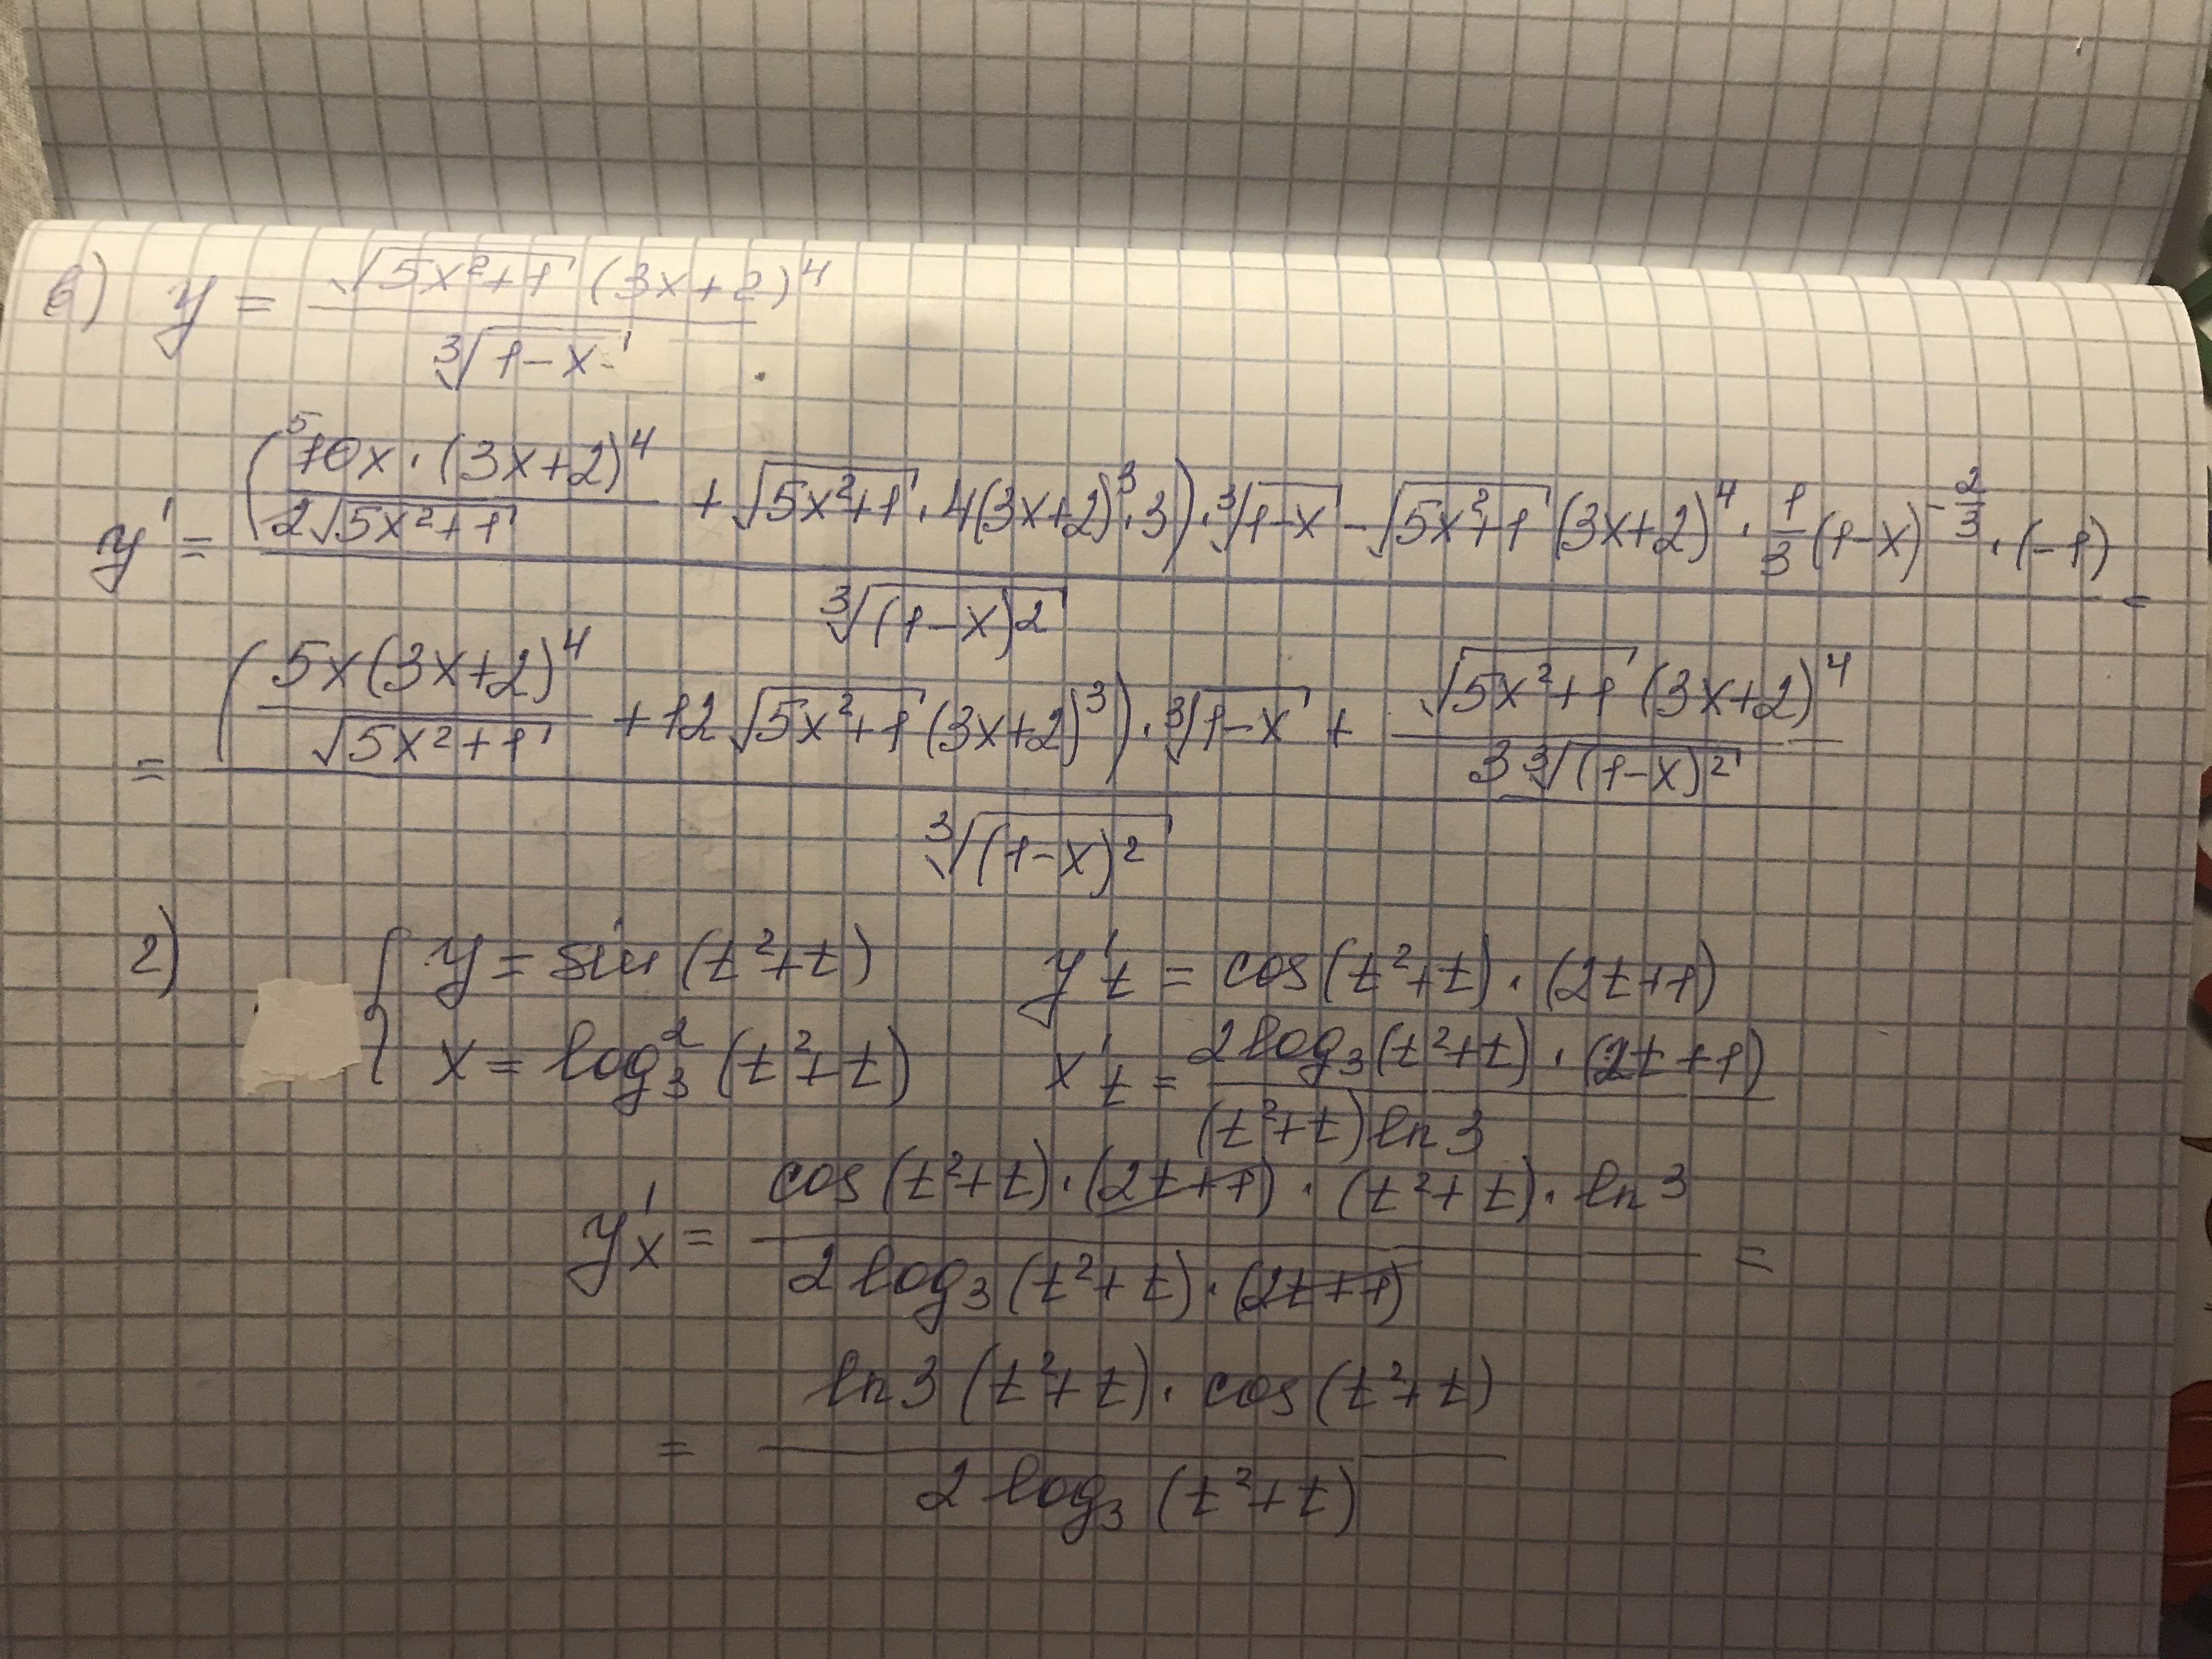 в) y = √(5x²+1) (3x+2)⁴ / ∛(1-x)
y' = ((⁵10x · (3x+2)⁴) / (2√(5x²+1)) + √(5x²+1) · 4(3x+2)³ · 3) · ∛(1-x) - √(5x²+1) (3x+2)⁴ · 1/3 (1-x)^(-2/3) · (-1) / ∛((1-x)²) =
= ((5x(3x+2)⁴) / √(5x²+1) + 12√(5x²+1) (3x+2)³) · ∛(1-x) + (√(5x²+1) (3x+2)⁴) / (3∛((1-x)²)) / ∛((1-x)²)
2) { y = sin (t²+t)    y't = cos(t²+t) · (2t+1)
x = log₃² (t²+t)    x't = 2log₃(t²+t) · (2t+1) / (t²+t) ln 3
y'x = cos(t²+t) · (2t+1) · (t²+t) · ln 3 / 2 log₃(t²+t) · (2t+1) =
= ln 3 (t²+t) · cos(t²+t) / 2 log₃ (t²+t)